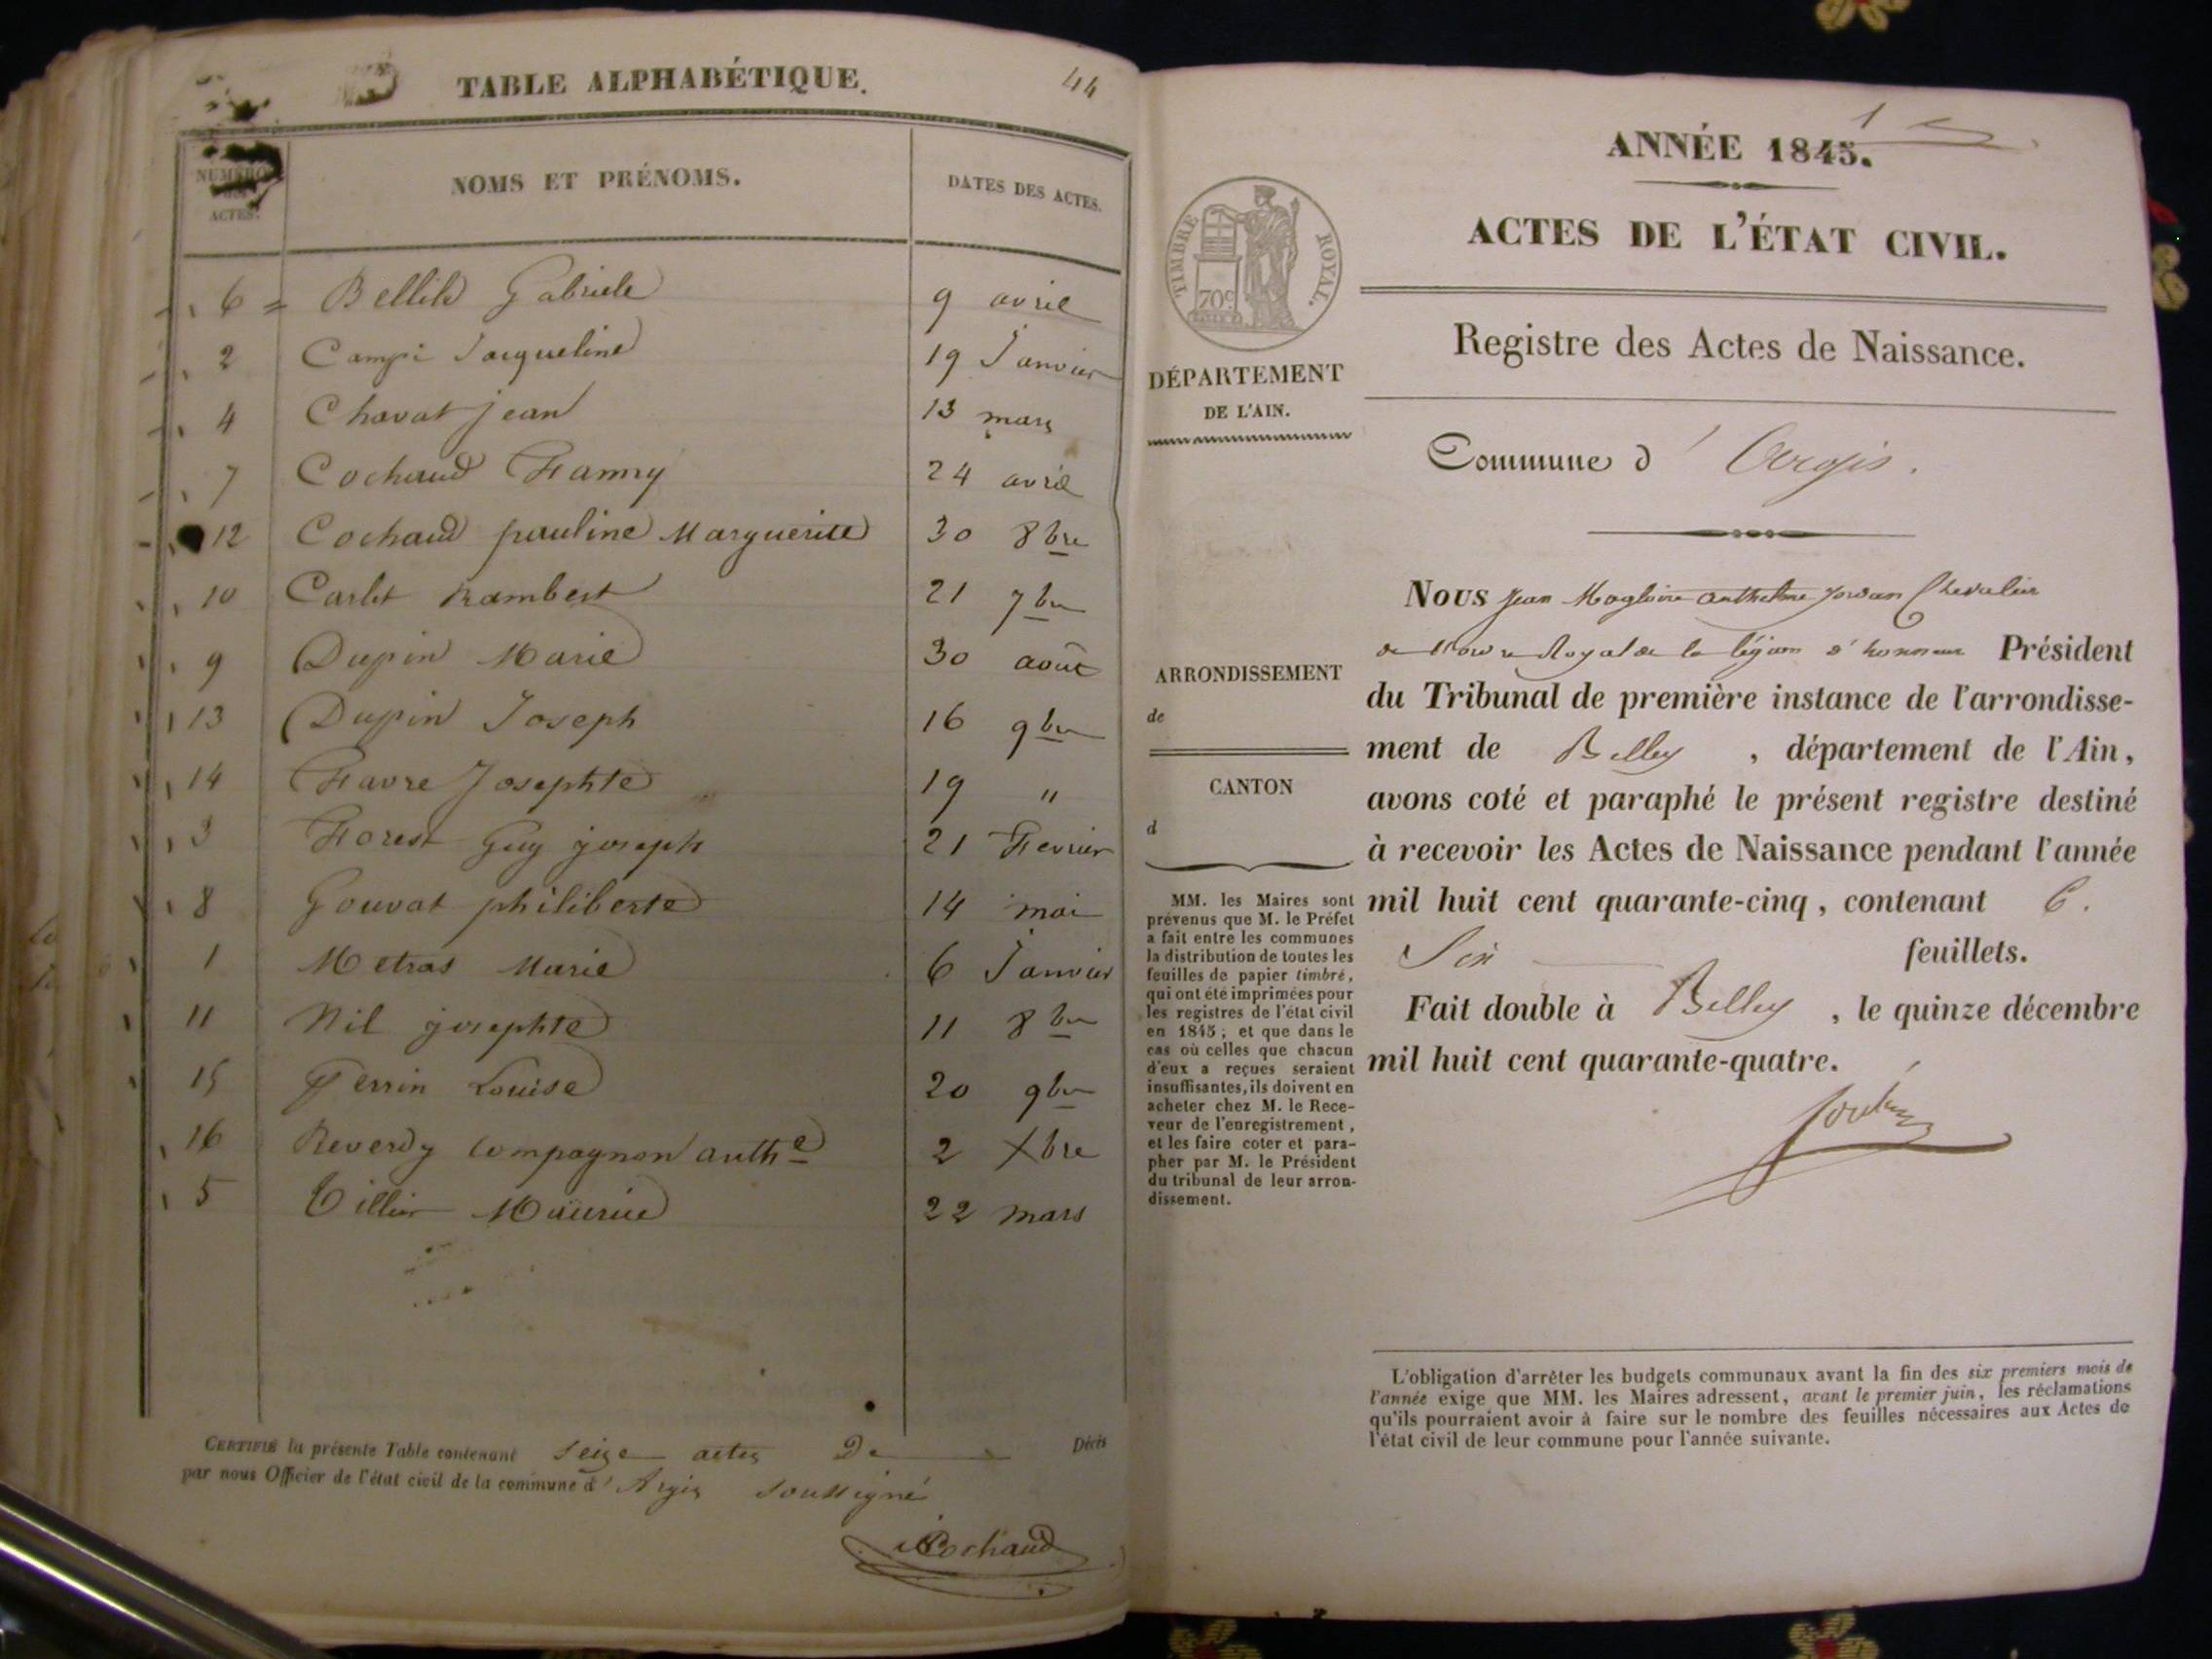 TABLE ALPHABÉTIQUE.
44
NUMÉRO
DES
ACTES.
NOMS ET PRÉNOMS.
DATES DES ACTES.
6 = Bellile Gabriele 9 avril
2 Campi Jacqueline 19 Janvier
4 Chavat jean 13 mars
7 Cochaud Fanny 24 avril
12 Cochaud pauline Marguerite 30 8bre
10 Carlet Rambert 21 7bre
9 Dupin Marie 30 août
13 Dupin Joseph 16 9bre
14 Favre Josephte 19 "
3 Forest Guy joseph 21 Fevrier
8 Gouvat philiberte 14 mai
1 Metras Marie 6 Janvier
11 Nil josephte 11 8bre
15 Perrin Louise 20 9bre
16 Reverdy Compagnon anthe 2 Xbre
5 Tillier Maurice 22 mars
CERTIFIÉ la présente Table contenant seize actes De Décès
par nous Officier de l'état civil de la commune d' Argis soussigné
Cochaud
1
ANNÉE 1845.
ACTES DE L'ÉTAT CIVIL.
TIMBRE ROYAL.
70c
Registre des Actes de Naissance.
DÉPARTEMENT
DE L'AIN.
Commune d' Argis.
ARRONDISSEMENT
de
CANTON
d
MM. les Maires sont
prévenus que M. le Préfet
a fait entre les communes
la distribution de toutes les
feuilles de papier timbré,
qui ont été imprimées pour
les registres de l'état civil
en 1845; et que dans le
cas où celles que chacun
d'eux a reçues seraient
insuffisantes, ils doivent en
acheter chez M. le Rece-
veur de l'enregistrement,
et les faire coter et para-
pher par M. le Président
du tribunal de leur arron-
dissement.
NOUS Jean Magloire Anthelme Jordan Chevalier
de l'ordre Royal de la légion d'honneur Président
du Tribunal de première instance de l'arrondisse-
ment de Belley, département de l'Ain,
avons coté et paraphé le présent registre destiné
à recevoir les Actes de Naissance pendant l'année
mil huit cent quarante-cinq, contenant 6.
Six feuillets.
Fait double à Belley, le quinze décembre
mil huit cent quarante-quatre.
Jordan
L'obligation d'arrêter les budgets communaux avant la fin des six premiers mois de
l'année exige que MM. les Maires adressent, avant le premier juin, les réclamations
qu'ils pourraient avoir à faire sur le nombre des feuilles nécessaires aux Actes de
l'état civil de leur commune pour l'année suivante.